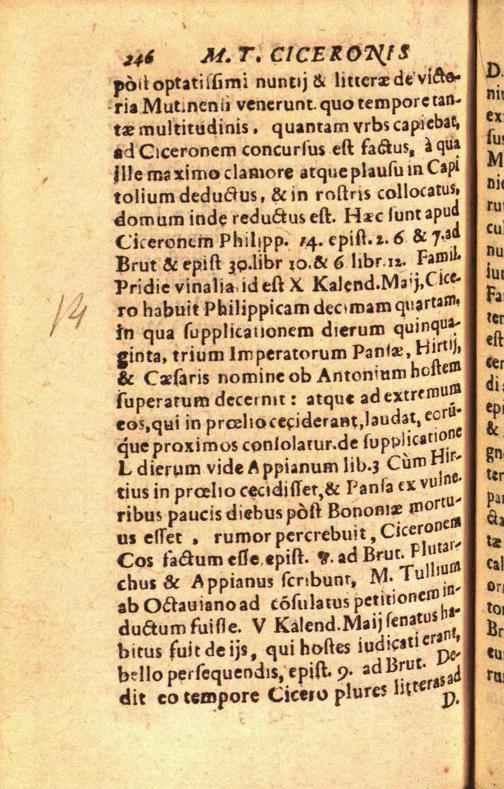 246 M. T. CICERONIS
pòst optatissimi nuntij & litteræ de victo-
ria Mutinensi venerunt. quo tempore tan-
tæ multitudinis, quantam vrbs capiebat,
ad Ciceronem concursus est factus, à qua
ille maximo clamore atque plausu in Capi
tolium deductus, & in rostris collocatus,
domum inde reductus est. Hæc sunt apud
Ciceronem Philipp. 14. epist. 2. 6 & 7. ad
Brut & epist 30. libr 10. & 6 libr. 12. Famil.
Pridie vinalia id est X Kalend. Maij, Cice-
ro habuit Philippicam decimam quartam,
14
in qua supplicationem dierum quinqua-
ginta, trium Imperatorum Pansæ, Hirtij,
& Cæsaris nomine ob Antonium hostem
superatum decernit: atque ad extremum
eos, qui in prœlio ceciderant, laudat, eorū-
que proximos consolatur. de supplicatione
L dierum vide Appianum lib. 3 Cùm Hir-
tius in prœlio cecidisset, & Pansa ex vulne-
ribus paucis diebus pòst Bononiæ mortu-
us esset, rumor percrebuit, Ciceronem
Cos factum esse. epist. ad Brut. Plutar-
chus & Appianus scribunt, M. Tullium
ab Octauiano ad cōsulatus petitionem in-
ductum fuisse. V Kalend. Maij senatus ha-
bitus fuit de ijs, qui hostes iudicati erant,
bello persequendis, epist. 9. ad Brut. De-
dit eo tempore Cicero plures litteras ad
D.